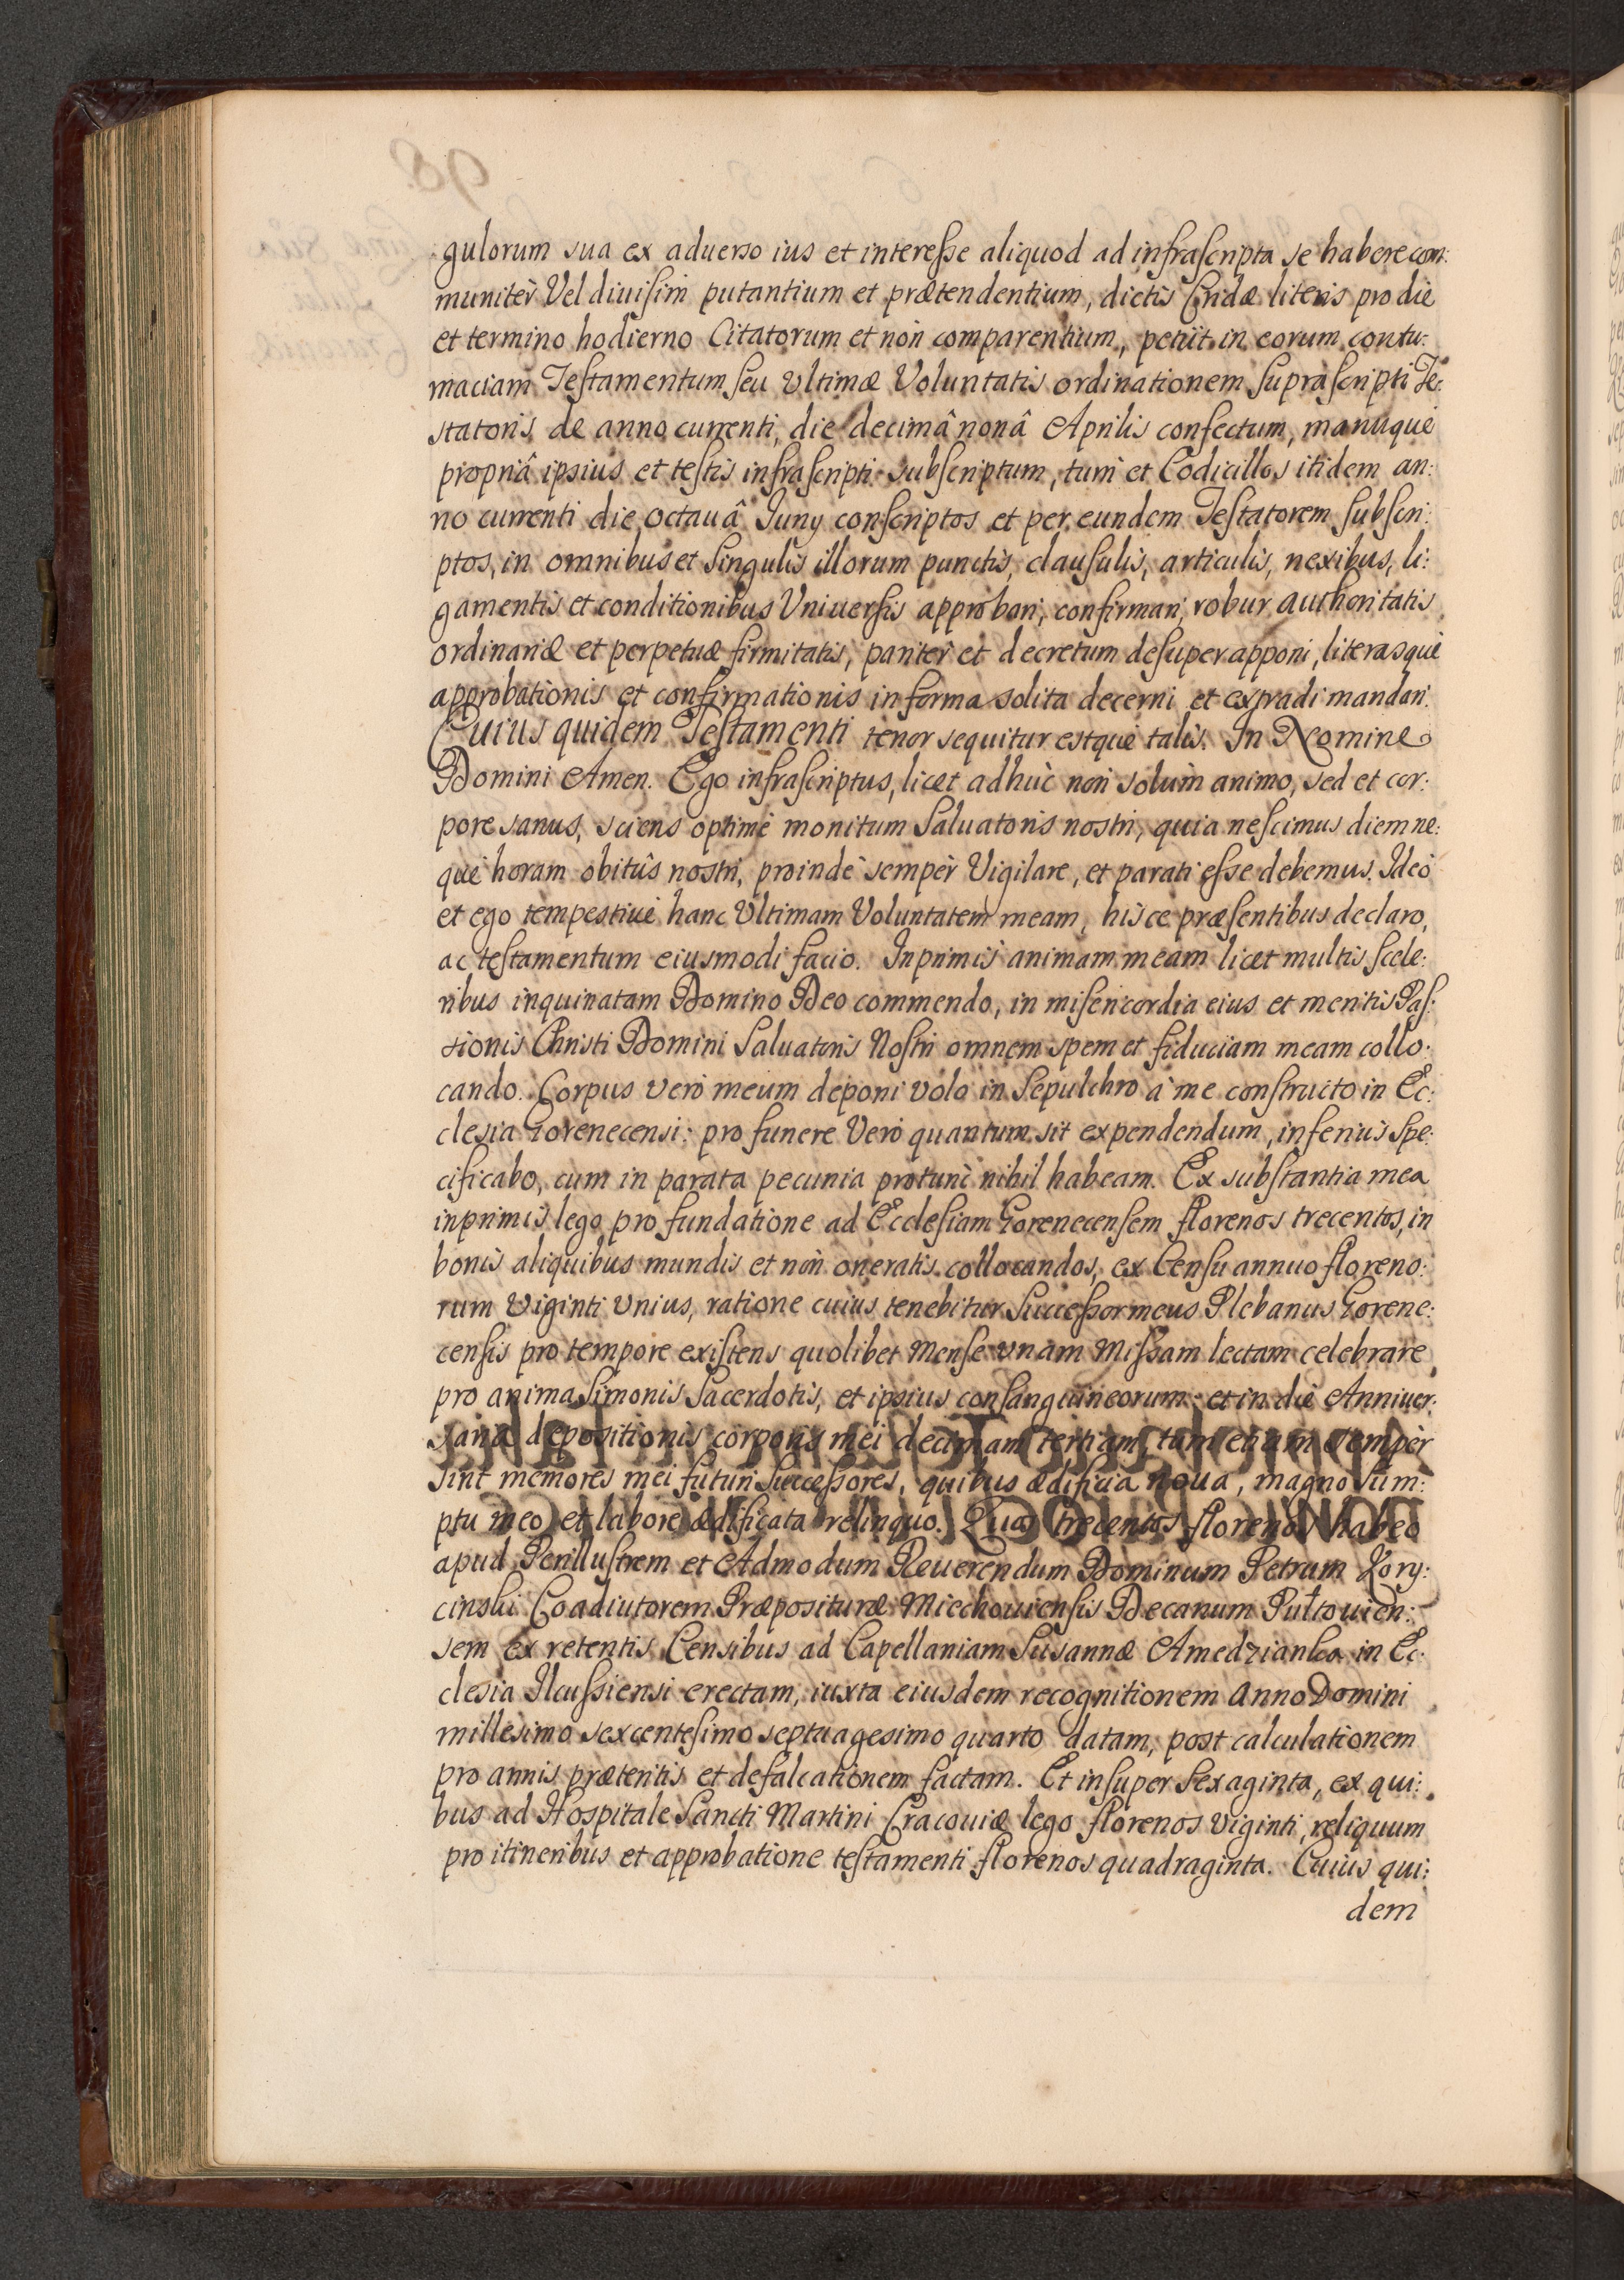 gulorum sua ex aduerso ius et interesse aliquod ad infrascripta se habere com:
munitèr Vel diuisim putantium et prætendentium, dictis Cridæ literis pro die
et termino hodierno Citatorum et non comparentium, petiit in eorum contu:
maciam Testamentum seu Vltimæ Voluntatis ordinationem suprascripti Te:
statoris de anno currenti, die decimâ nonâ Aprilis confectum, manuque
propriâ ipsius et testis infrascripti subscriptum, tum et Codicillos itidem an:
no currenti die octauâ Iuny conscriptos et per eundem Testatorem subscri:
ptos, in omnibus et singulis illorum punctis, clausulis, articulis, nexibus, li:
gamentis et conditionibus Vniuersis approbari, confirmari, robur authoritatis
ordinariæ et perpetuæ firmitatis, paritèr et decretum desuper apponi, literasque
approbationis et confirmationis in forma solita decerni et extradi mandari.
Cuius quidem Testamenti tenor sequitur estque talis. In Nomine
Domini Amen. Ego infrascriptus, licet adhuc non solùm animo, sed et cor:
pore sanus, sciens optimè monitum Saluatoris nostri, quia nescimus diem ne:
que horam obitûs nostri, proindè sempèr Vigilare, et parati esse debemus. Ideò
et ego tempestiuè hanc Vltimam Voluntatem meam, hisce præsentibus declaro,
ac testamentum eiusmodi facio. Inprimis animam meam licet multis scele:
ribus inquinatam Domino Deo commendo, in misericordia eius et meritis Pas:
sionis Christi Domini Saluatoris Nostri omnem spem et fiduciam meam collo:
cando. Corpus verò meum deponi volo in Sepulchro à me constructo in Ec:
clesia Gorenecensi: pro funere Verò quantum sit expendendum, inferius spe:
cificabo, cum in parata pecunia protunc nihil habeam. Ex substantia mea
inprimis lego pro fundatione ad Ecclesiam Gorenecensem florenos trecentos, in
bonis aliquibus mundis et non oneratis collocandos, ex Censu annuo floreno:
rum Viginti Vnius, ratione cuius tenebitur Successor meus Plebanus Gorene:
censis pro tempore existens quolibet Mense vnam Missam lectam celebrare
pro anima Simonis Sacerdotis, et ipsius consanguineorum: et in die Anniuer:
sariæ depositionis corporis mei decimam tertiam, tum etiam sempèr
sint memores mei futuri Successores, quibus ædificia noua, magno sum:
ptu meo et labore ædificata relinquo. Quos trecentos florenos habeo
apud Perillustrem et Admodum Reuerendum Dominum Petrum Kory:
cinski Coadiutorem Præposituræ Miechouiensis Decanum Pultouien:
sem ex retentis Censibus ad Capellaniam Susannæ Amedzianka in Ec:
clesia Ilcussiensi erectam, iuxta eiusdem recognitionem Anno Domini
millesimo sexcentesimo septuagesimo quarto datam, post calculationem
pro annis præteritis et defalcationem factam. Et insuper sexaginta, ex qui:
bus ad Hospitale Sancti Martini Cracouiæ lego florenos Viginti, reliquum
pro itineribus et approbatione testamenti florenos quadraginta. Cuius qui:
dem